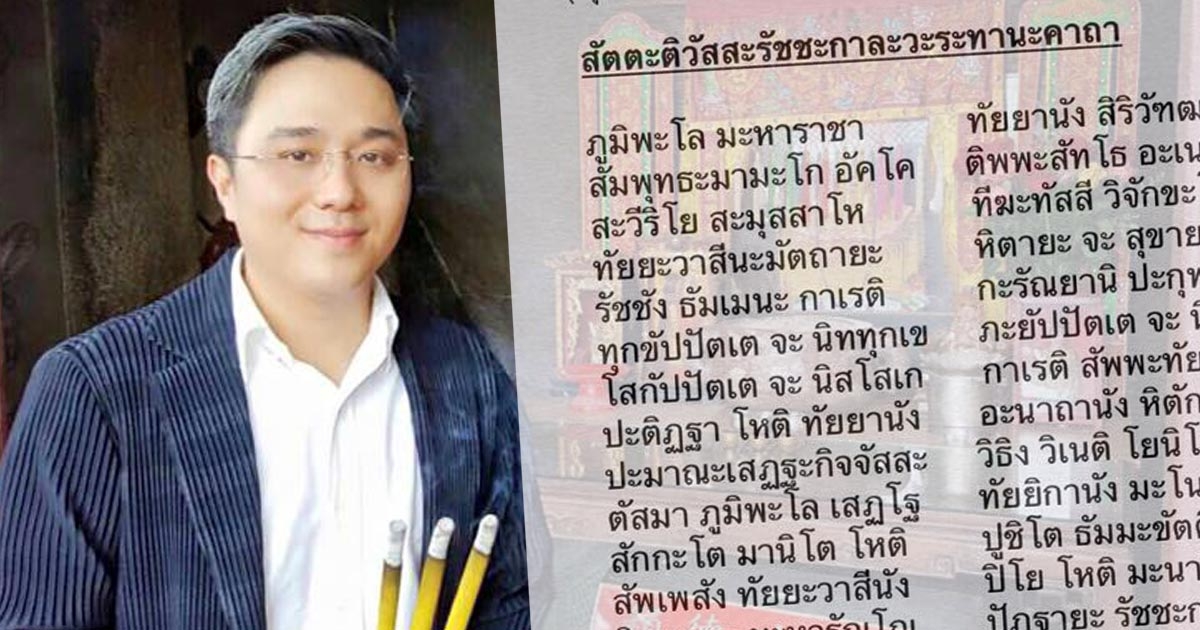 สัตตะติวัสสะรัชชะกาละวะระทานะคาถา
ภูมิพะโล มะหาราชา
สัมพุทธะมามะโก อัคโค
สะวีริโย สะมุสสาโห
ทัยยะวาสีนะมัตถายะ
รัชชัง ธัมเมนะ กาเรติ
ทุกขัปปัตเต จะ นิททุกเข
โสกัปปัตเต จะ นิสโสเก
ปะติฏฐา โหติ ทัยยานัง
ปะมาณะเสฏฐะกิจจัสสะ
ตัสมา ภูมิพะโล เสฏโฐ
สักกะโต มานิโต โหติ
สัพเพสัง ทัยยะวาสีนัง
ทัยยานัง สิริวัฑฒ
ติพพะสัทโธ อะเน
ทีฆะทัสสี วิจักขะ
หิตายะ จะ สุขาย
กะรัณยานิ ปะกุพ
ภะยัปปัตเต จะ นิ
กาเรติ สัพพะทัย
อะนาถานัง หิตัก
วิธิง วิเนติ โยนิโ
ทัยยิกานัง มะโน
ปูชิโต ธัมมะขัต
ปิโย โหติ มะนา
ปัฏฐายะ รัชชะก